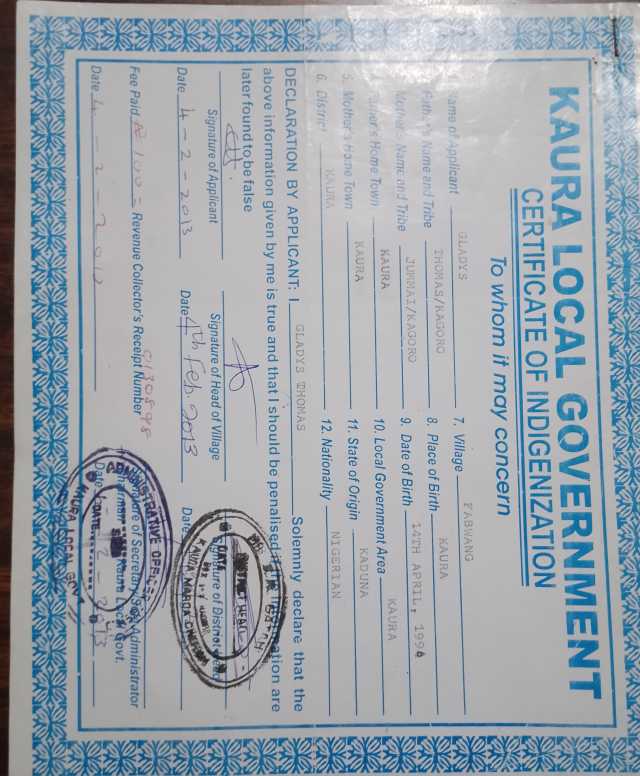 KAURA LOCAL GOVERNMENT
CERTIFICATE OF INDIGENIZATION
To whom it may concern
Name of Applicant GLADYS
Name and Tribe THOMAS/KAGORO
Name and Tribe JUMMAI/KAGORO
Home Town KAURA
5. Mother's Home Town KAURA
6. District KAURA
7. Village FABWANG
8. Place of Birth KAURA
9. Date of Birth 14TH APRIL, 1996
10. Local Government Area KAURA
11. State of Origin KADUNA
12. Nationality NIGERIAN
DECLARATION BY APPLICANT: I GLADYS THOMAS Solemnly declare that the
above information given by me is true and that I should be penalised are
later found to be false
Signature of Applicant
Date 4-2-2013
Signature of Head of Village
Date 4th Feb 2013
Signature of District
Date
Fee Paid ₦100= Revenue Collector's Receipt Number 0130898
Date 4-2-201
of Secretary Administrator
Govt.
Date
ADMINISTRATIVE OFFICER
KAURA LOCAL GOVT